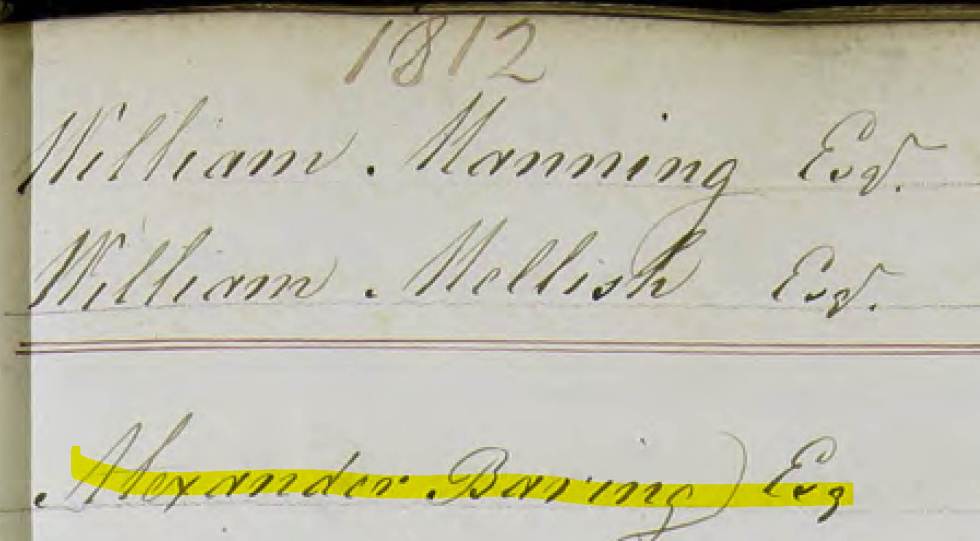 1812
William Manning Esqr.
William Mellish Esqr.
Alexander Baring Esq